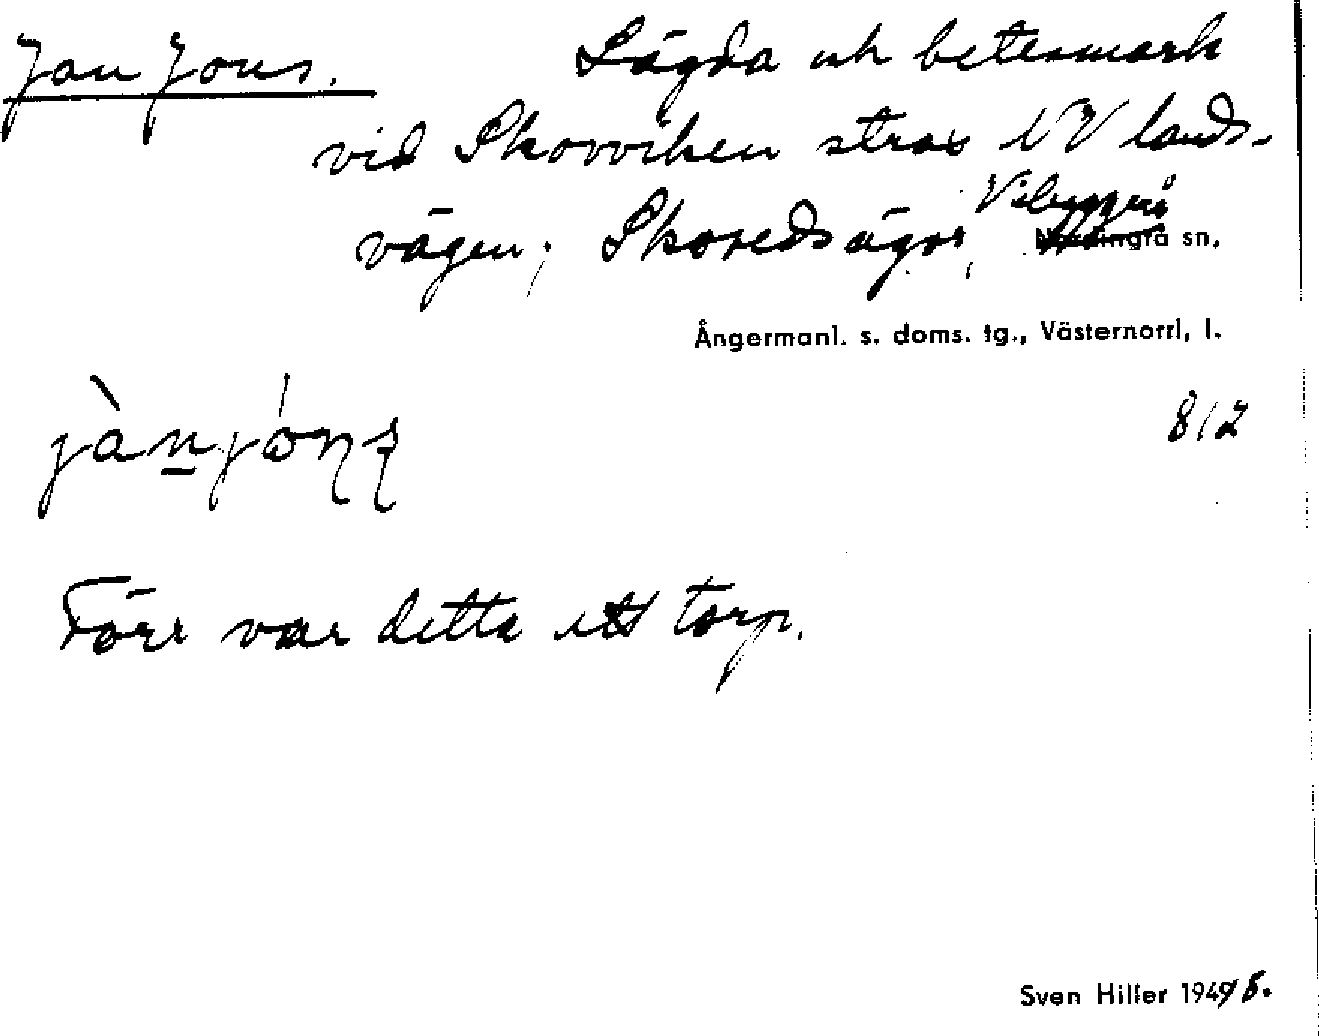 Jan Jons. Lägda och betesmark
vid Skovviken strax NV lands-
vägen; Skovedsägor, Vibyggerå sn.
Ångermanl. s. doms. tg., Västernorrl. l.
812
Förr var detta ett torp.
Sven Hiller 1945.